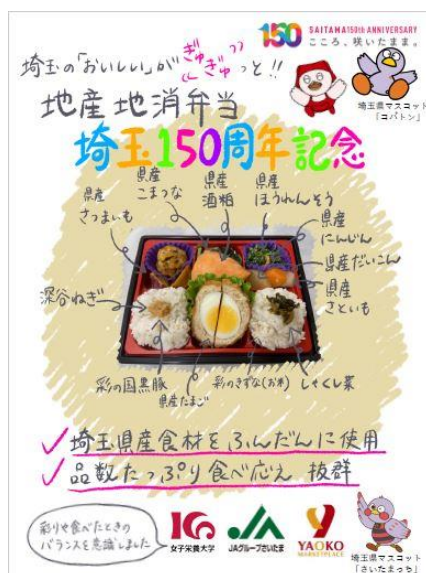 150 SAITAMA150th ANNIVERSARY
こころ、咲いたまま。
埼玉の「おいしい」が ぎゅぎゅっと!!
地産地消弁当
埼玉県マスコット
「コバトン」
埼玉150周年記念
県産
さつまいも
県産
こまつな
県産
酒粕
県産
ほうれんそう
県産
にんじん
県産だいこん
県産
さといも
深谷ねぎ
彩の国黒豚
県産たまご
彩のきずな(お米)
しゃくし菜
✓埼玉県産食材をふんだんに使用
✓品数たっぷり食べ応え 抜群
彩りや食べたときの
バランスを意識しました
女子栄養大学
JAグループさいたま
YAOKO
MARKETPLACE
埼玉県マスコット
「さいたまっち」